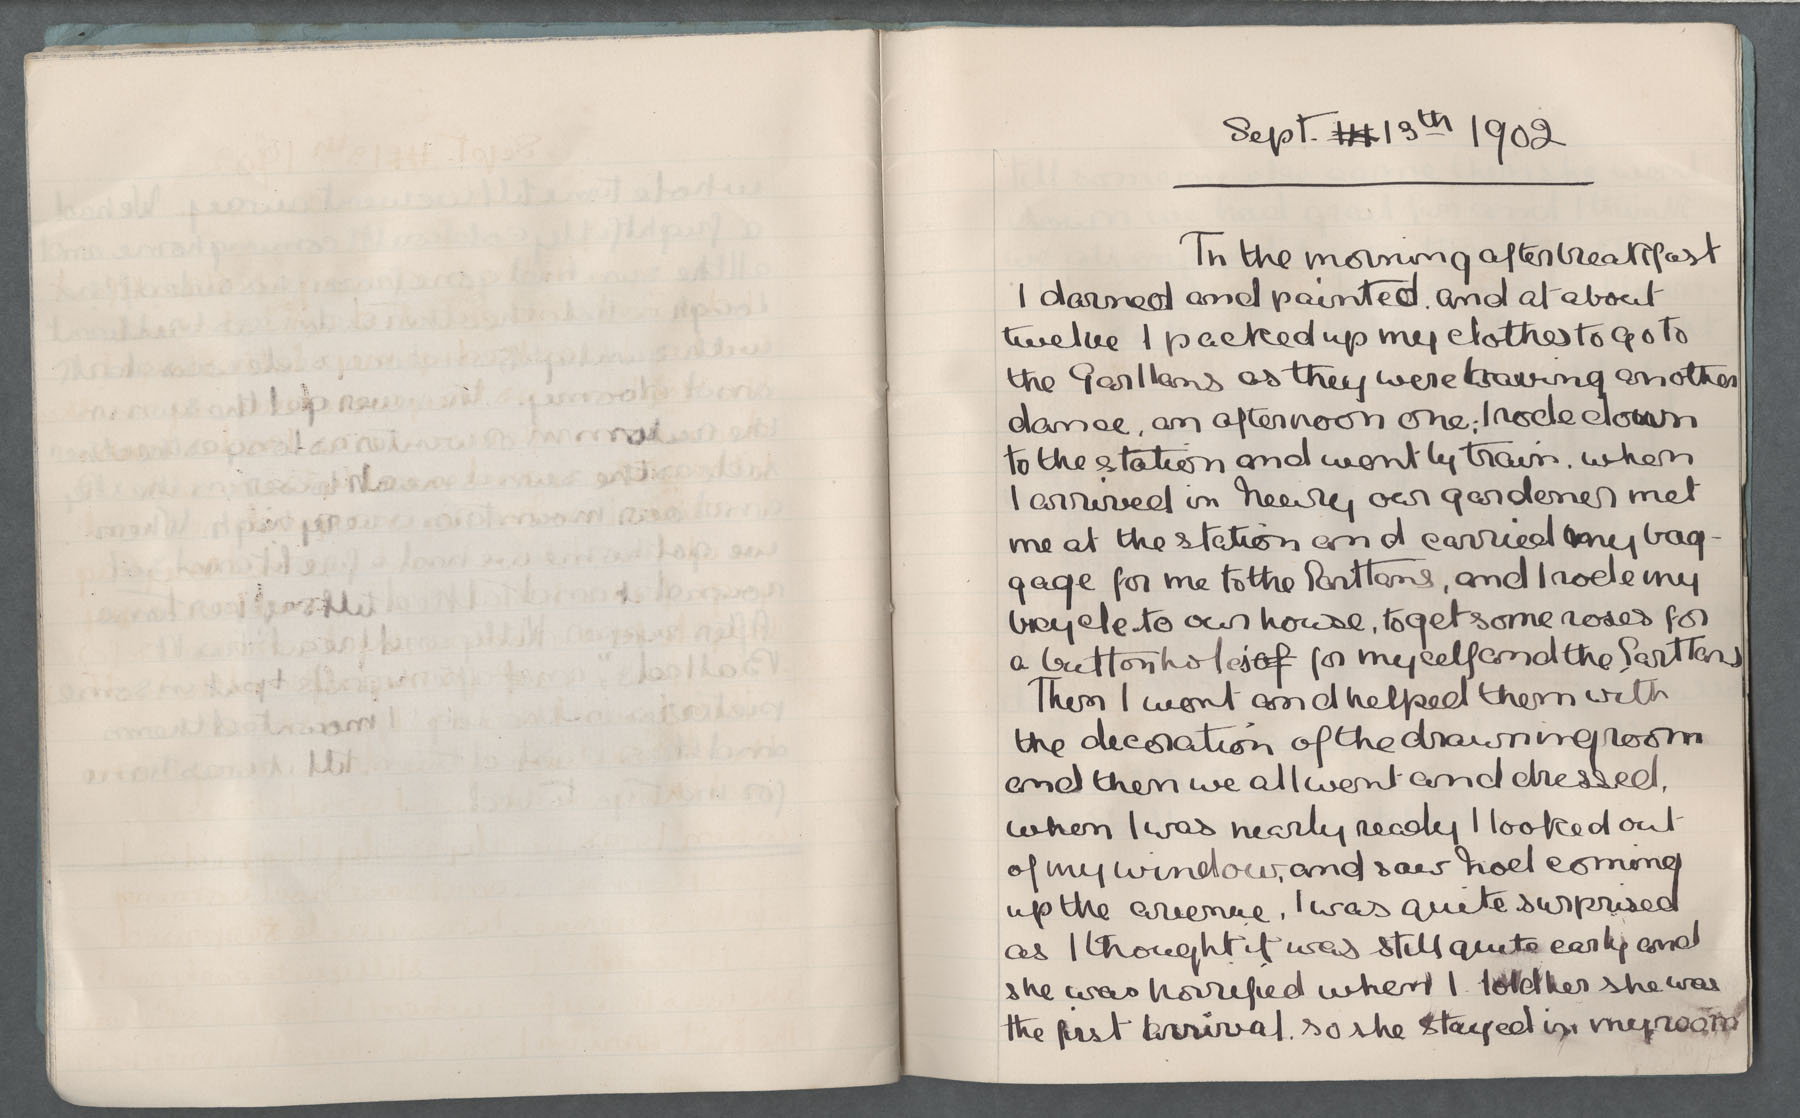 Sept. 13th 1902
In the morning after breakfast
I darned and painted. and at about
twelve I packed up my clothes to go to
the Parttans as they were having another
dance, an afternoon one; I rode down
to the station and went by train. when
I arrived in Newry our gardener met
me at the station and carried my bag-
gage for me to the Parttans, and I rode my
bicycle to our house, to get some roses for
a buttonholes of for myself and the Parttans
Then I went and helped them with
the decoration of the drawning room
and then we all went and dressed,
when I was nearly ready I looked out
of my window, and saw Noel coming
up the avenue, I was quite surprised
as I thought it was still quite early and
she was horrified when I told her she was
the first arrival. so she stayed in my room